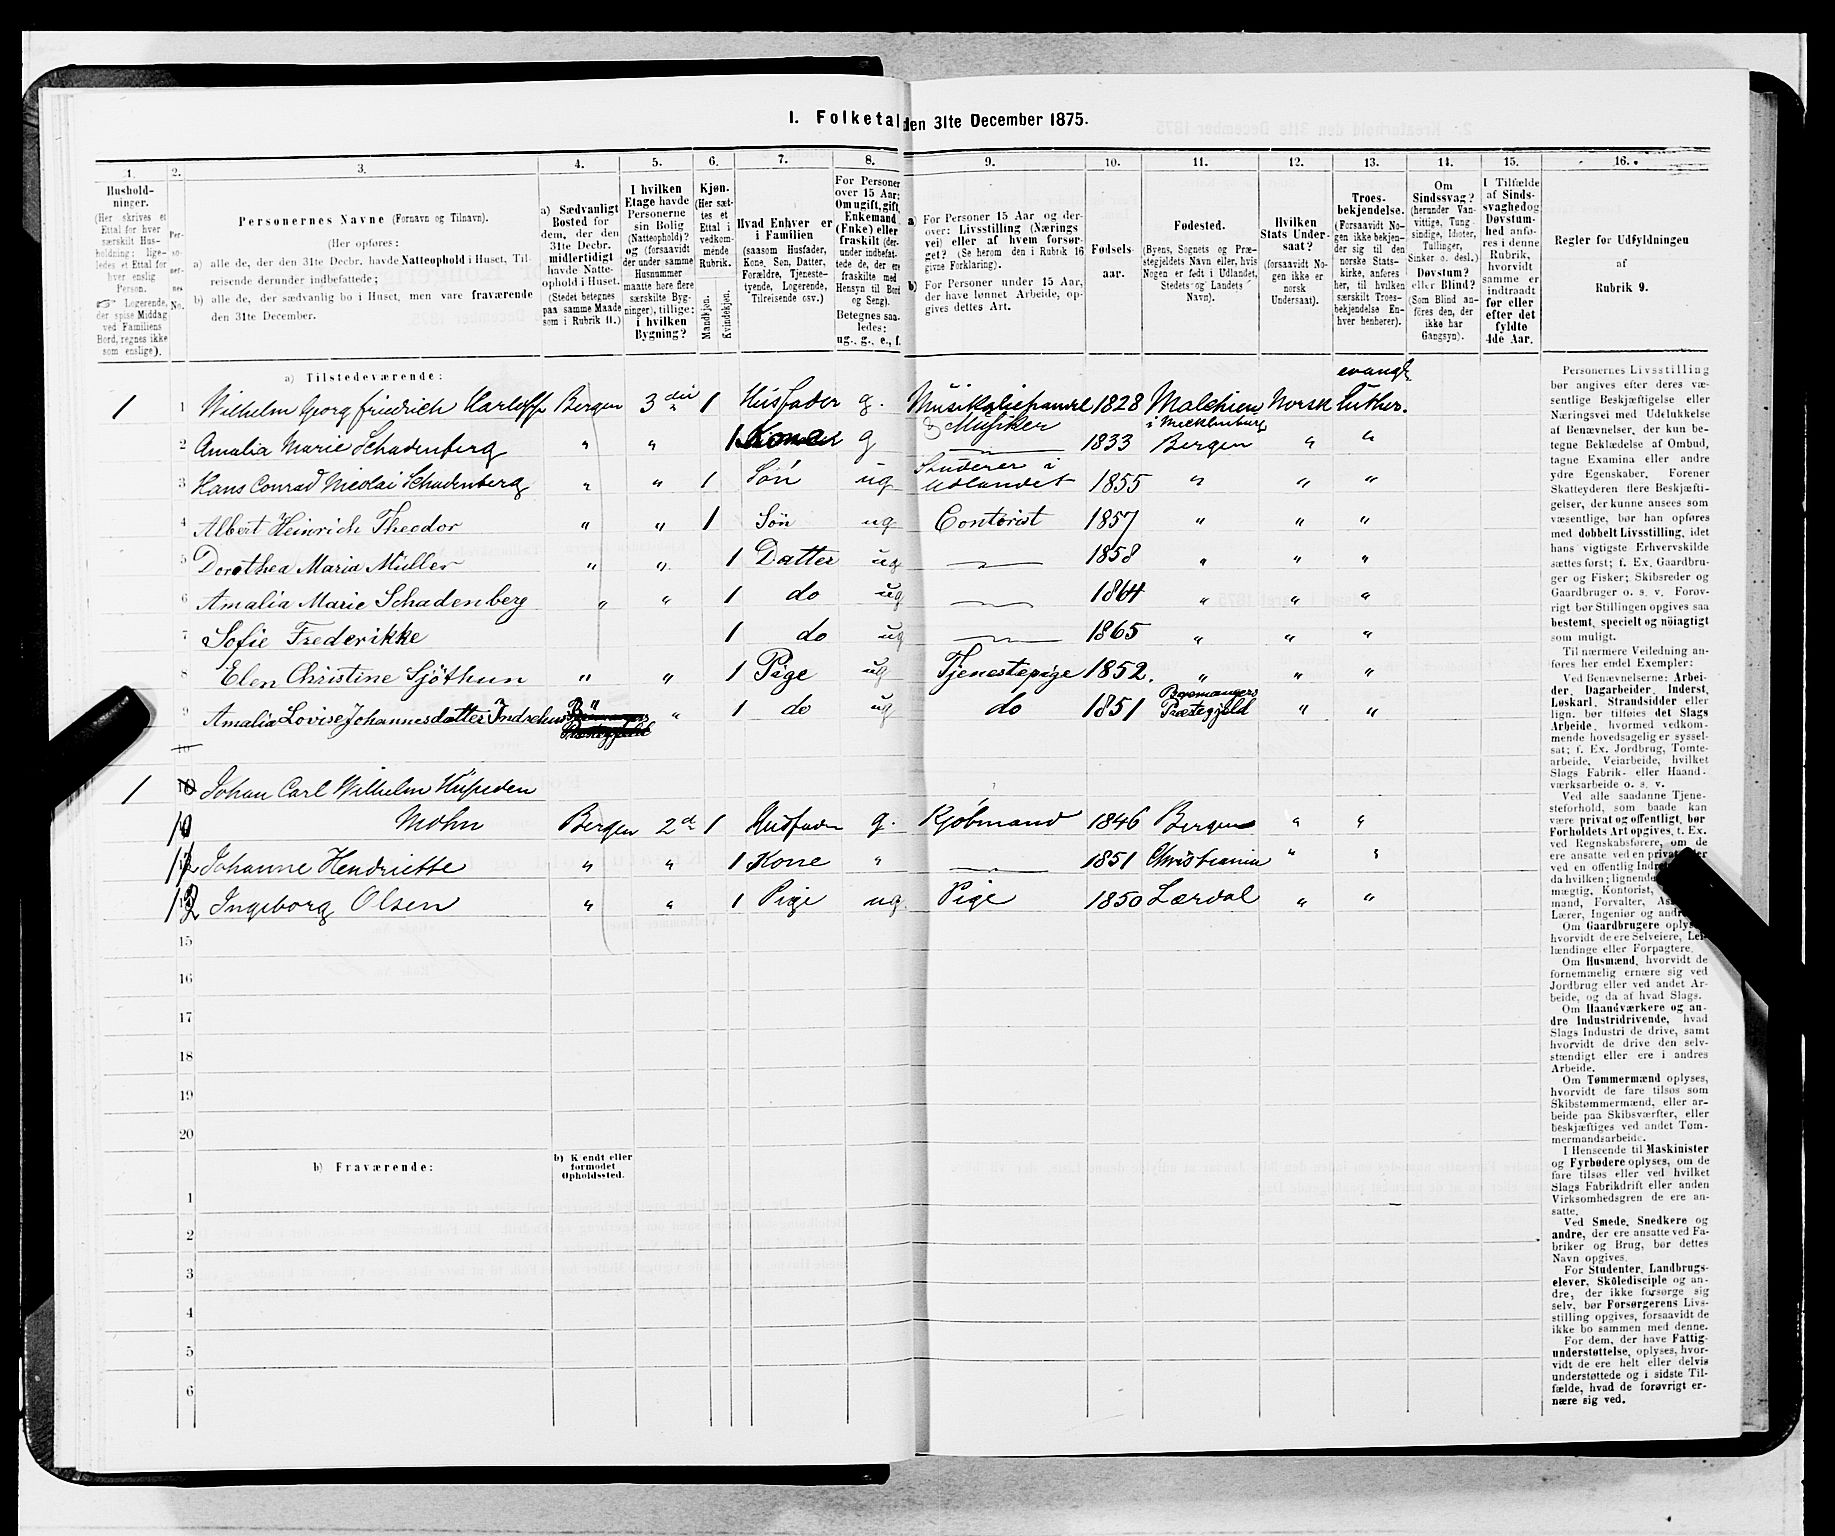 1. Folketal den 31te December 1875.
1. 2. 3. 4. 5. 6. 7. 8. 9. 10. 11. 12. 13. 14. 15. 16.
Husholdninger.
(Her skrives et
Ettal for hver
særskilt Husholdning:
ligeledes et Ettal for
hver enslig
Person.
☞ Logerende,
der spise Middag
ved Familiens
Bord, regnes ikke
som enslige).
Personernes No.
Personernes Navne (Fornavn og Tilnavn).
(Her opføres:
a) alle de, der den 31te Decbr. havde Natteophold i Huset, Tilreisende derunder indbefattede;
b) alle de, der sædvanlig bo i Huset, men vare fraværende
den 31te December.
a) Sædvanligt
Bosted for
dem, der den
31te Decbr.
midlertidigt
havde Natteophold i Huset.
(Stedet betegnes
paa samme Maade
som i Rubrik 11.)
I hvilken
Etage havde
Personerne
sin Bolig
(Natteophold)?
og (forsaavidt
der under samme
Husnummer
maatte høre flere
særskilte Bygninger), tillige:
i hvilken
Bygning?
Kjøn.
(Her sættes et
Ettal i
vedkommende
Rubrik.
Mandkjøn.
Kvindekjøn.
Hvad Enhver er
i Familien
(saasom Husfader,
Kone, Søn, Datter,
Forældre, Tjenestetyende, Logerende,
Tilreisende osv.)
For Personer
over 15 Aar:
Om ugift, gift,
Enkemand
(Enke) eller
fraskilt (derunder indbefattede de, der ere
fraskilte med
Hensyn til Bord
og Seng).
Betegnes saaledes:
ug., g., e., f.
a) For Personer 15 Aar og derover: Livsstilling (Næringsvei) eller af hvem forsørget? (Se herom den i Rubrik 16
givne Forklaring).
b) For Personer under 15 Aar,
der have lønnet Arbeide, opgives dettes Art.
Fødselsaar.
Fødested.
(Byens, Sognets og Præstegjeldets Navn eller, hvis
Nogen er født i Udlandet,
Stedets og Landets
Navn).
Hvilken
Stats Undersaat?
(forsaavidt Nogen ikke er
norsk
Undersaat).
Troesbekjendelse.
(Forsaavidt Nogen ikke bekjender sig til den
norske Statskirke, anføres
her, til hvilken
særskilt Troesbekjendelse Enhver henhører).
Om
Sindssvag?
(herunder Vanvittige, Tungsindige, Idioter,
Tullinger,
Sinker o. desl.)
Døvstum?
eller Blind?
(Som Blind anføres den, der
ikke har
Gangsyn).
I Tilfælde
af Sindssvaghed og
Døvstumhed anføres i denne
Rubrik,
hvorvidt
samme er
indtraadt
før eller
efter det
fyldte
4de Aar.
Regler for Udfyldningen
af
Rubrik 9.
a) Tilstedeværende:
evangl
1 1 Wilhelm Georg friedrich Harloff Bergen 3die 1 Husfader g. Musikaliehandl & Musiker 1828 Malchien i Mecklenburg Norsk luther.
2 Amalia Marie Schadenberg " " 1 Kone g 1833 Bergen " "
3 Hans Conrad Nicolai Schadenberg " " 1 Søn ug Studerer i Udlandet 1855 " " "
4 Albert Heinrich Theodor " " 1 Søn ug Contorist 1857 " " "
5 Dorothea Maria Müller " " 1 Datter ug 1858 " " "
6 Amalia Marie Schadenberg " " 1 do ug 1864 " " "
7 Sofie Frederikke 1 do ug 1865 " " "
8 Elen Christine Sjøthun " " 1 Pige ug Tjenestepige 1852. " " "
9 Amalia Lovise Johannesdatter " " 1 do ug do 1851 Præstegjeld " "
1 Johan Carl Wilhelm Hüpeden
10 Mohn Bergen 2d 1 Husfader g. Kjøbmand 1846 Bergen " "
11 Johanne Hendriette " " 1 Kone " 1851 Christiania " "
12 Ingeborg Olsen " " 1 Pige ug. Pige 1850 Lærdal " "
15
16
17
18
19
20
b) Fraværende:
b) Kendt eller
formodet
Opholdssted.
1
2
3
4
5
6
Personernes Livsstilling
bør angives efter deres væsentlige Beskjæftigelse eller
Næringsvei med Udelukkelse
af Benævnelser, der kun betegne Beklædelse af Ombud,
tagne Examina eller andre
ydre Egenskaber. Forener
Skatteyderen flere Beskjæftigelser, der kunne ansees som
væsentlige, bør han opføres
med dobbelt Livsstilling, idet
hans vigtigste Erhvervskilde
sættes først; f. Ex. Gaardbruger og Fisker; Skibsreder og
Gaardbruger o. s. v. Forøvrigt bør Stillingen opgives saa
bestemt, specielt og nöiagtigt
som muligt.
Til nærmere Veiledning anføres her endel Exempler:
Ved Benævnelserne: Arbeider, Dagarbeider, Inderst,
Løskarl, Strandsidder eller
lign. bør tilføies det Slags
Arbeide, hvormed vedkommende hovedsagelig er sysselsat; f. Ex. Jordbrug, Tomtearbeide, Veiarbeide, hvilket
Slags Fabrik- eller Haandværksarbeide o. s. v.
Ved alle saadanne Tjenesteforhold, som baade kan
være privat og offentligt, bør
Forholdets Art opgives, t. Ex.
ved Regnskabsførere, om de
ere ansatte ved en privat eller
ved en offentlig
da hvilken;
mand, Forvalter,
Lærer, Ingeniør og andre
Om Gaardbrugere oplyses,
hvorvidt de ere Selveiere, Leilændinge eller Forpagtere.
Om Husmænd, hvorvidt de
fornemmelig ernære sig ved
Jordbrug eller ved andet Arbeide, og da af hvad Slags.
Om Haandværkere og andre Industridrivende, hvad
Slags Industri de drive, samt
hvorvidt de drive den selvstændigt eller ere i andres
Arbeide.
Om Tømmermænd oplyses,
hvorvidt de fare tilsøs som
Skibstømmermænd, eller arbeide paa Skibsværfter, eller
beskjæftiges ved andet Tømmermandsarbeide.
I Henseende til Maskinister
og Fyrbødere oplyses, om de
fare tilsøs eller ved hvilket
Slags Fabrikdrift eller anden
Virksomhedsgren de ere ansatte.
Ved Smede, Snedkere og
andre, der ere ansatte ved Fabriker og Brug, bør dettes
Navn opgives.
For Studenter, Landbrugselever, Skoledisciple og andre, der ikke forsørge sig
selv, bør Forsørgerens Livsstilling opgives, forsaavidt de
ikke bo sammen med denne.
For dem, der have Fattigunderstøttelse, oplyses, hvorvidt de ere helt eller delvis
understøttede og i sidste Tilfælde, hvad de forøvrigt ernære sig ved.